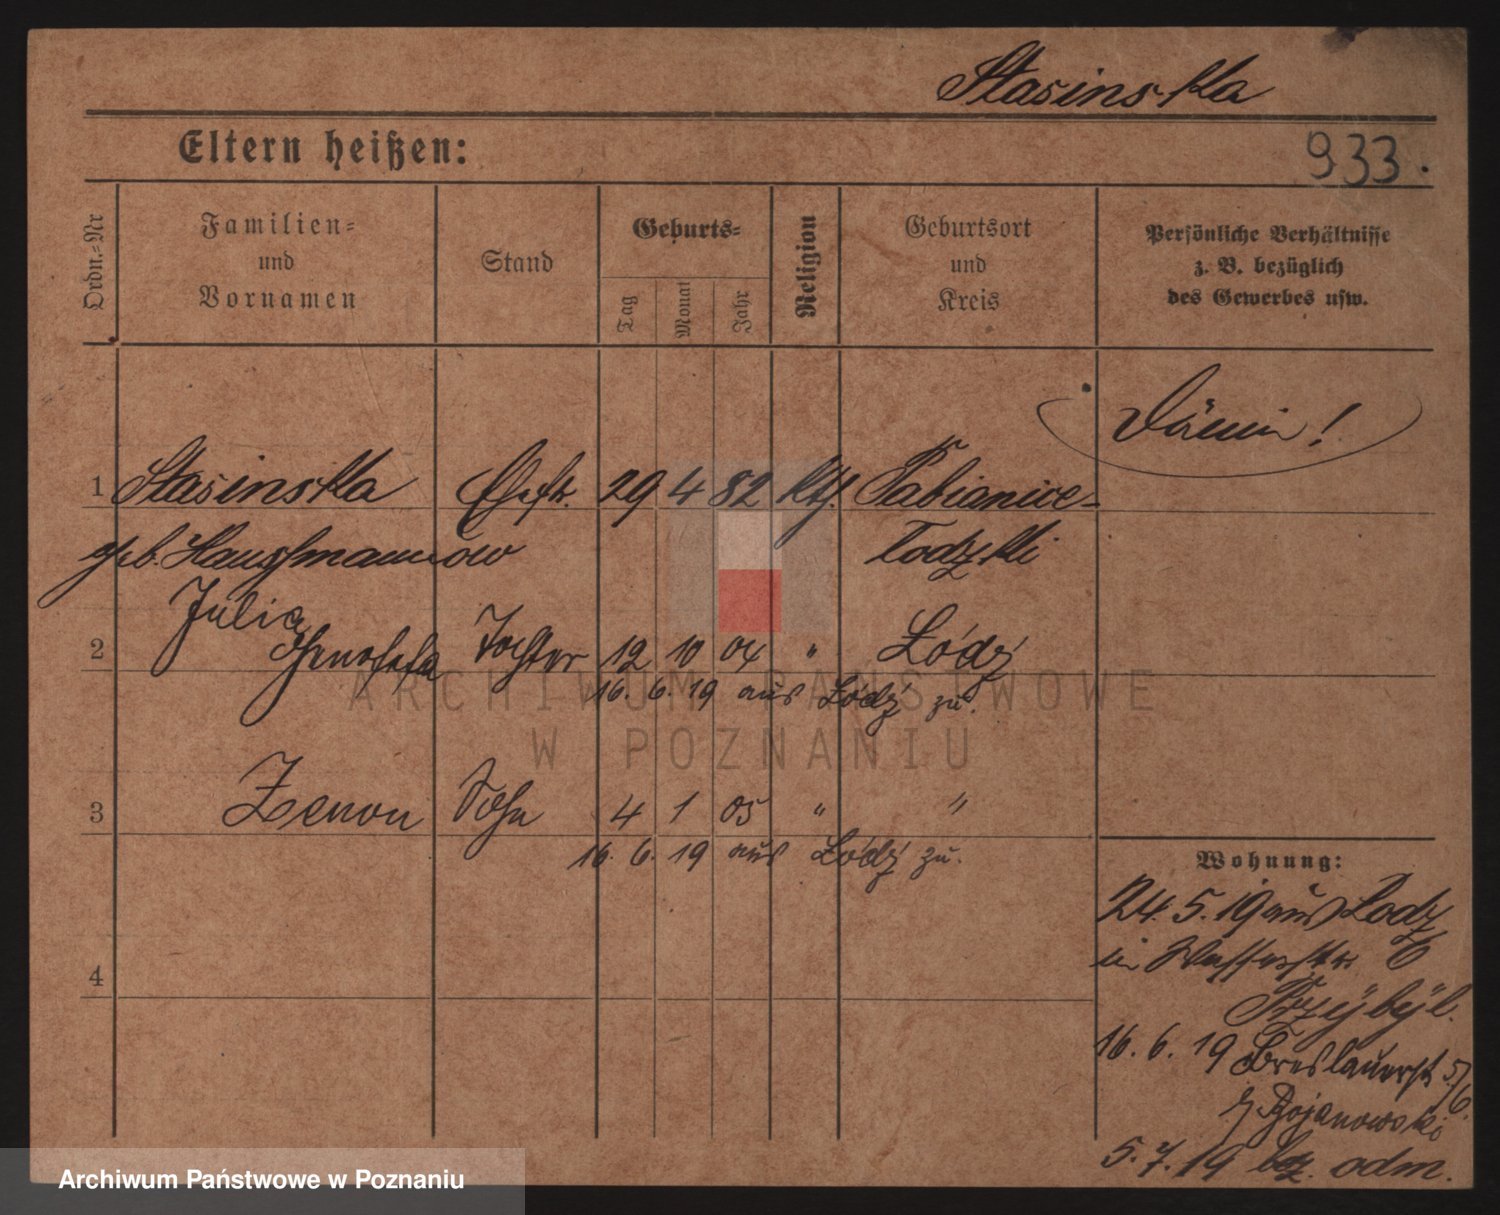 Stasinska
Eltern heißen:
933.
Ordn.-Nr
Familien-
und
Vornamen
Stand
Geburts-
Tag
Monat
Jahr
Religion
Geburtsort
und
Kreis
Persönliche Verhältnisse
z. B. bezüglich
des Gewerbes usw.
1 Stasinska 29 4 82 Pabianice-
geb.
Julia
2 Genofefa Tochter 12 10 04 " Łódź
16. 6. 19 aus Łódź zu.
3 Zenon Sohn 4 1 05 " "
16. 6. 19 aus Łódź zu.
4
Wohnung:
24. 5. 19 aus Lodz
in Wasserstr 6
Przybyl.
16. 6. 19 Breslauerst 5/6
b/ Bojanowski
5. 7. 19 bez. odm.
ARCHIWUM PAŃSTWOWE
W POZNANIU
Archiwum Państwowe w Poznaniu